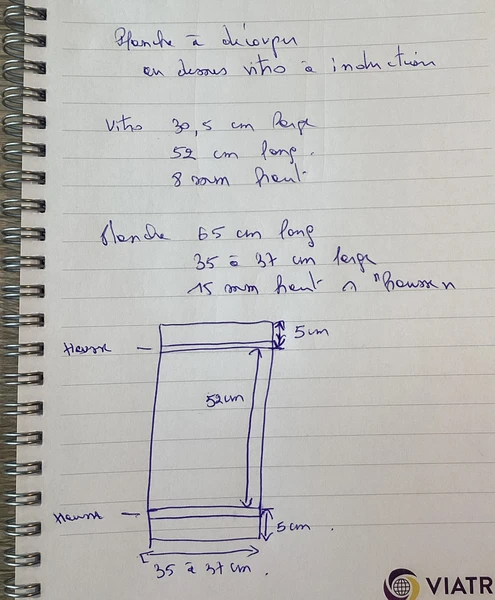 Planche à découper
en dessus vitro à induction
Vitro 30,5 cm large
52 cm long.
8 mm haut
Planche 65 cm long
35 à 37 cm large
15 mm haut
5 cm
Hausse
52 cm
Hausse
5 cm
35 à 37 cm.
VIATR